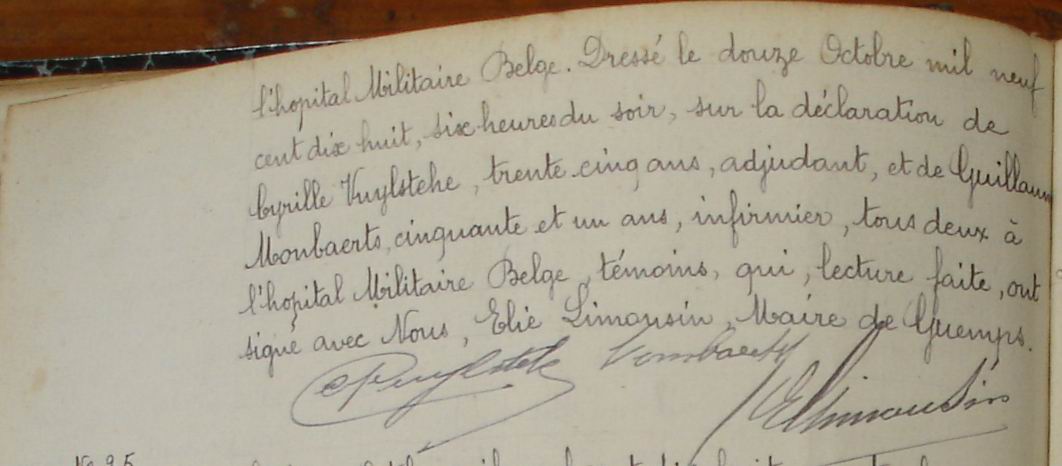 l'hopital Militaire Belge. Dressé le douze Octobre mil neuf
cent dix huit, six heures du soir, sur la déclaration de
Cyrille Vuylsteke, trente-cinq ans, adjudant, et de Guillaum
Monbaerts, cinquante et un ans, infirmier, tous deux à
l'hopital Militaire Belge, témoins, qui, lecture faite, ont
signé avec Nous, Elie Limousin, Maire de Guemps.
CVuylsteke Monbaerts
ELimousin
N° 95